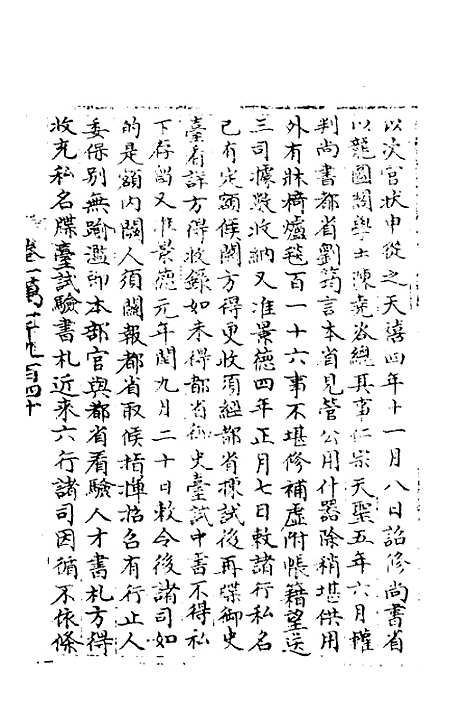 以次官狀申從之天禧四年十一月八日詔修尚書省
以龍圖閣學士陳堯咨總其事仁宗天聖五年六月權
判尚書都省劉筠言本省見管公用什器除稍堪供用
外有牀椅爐毯百一十六事不堪修補虛附帳籍望送
三司據數收納又准景德四年正月七日敕諸行私名
已有定額候闕方得更收須經都省揀試後再牒御史
臺看詳方得收錄如未得都省御史臺試中書不得私
下存留又准景德元年閏九月二十日敕今後諸司如
的是額内闕人須關報都省取候指揮招召有行止人
委保別無踰濫即本部官與都省看驗人才書札方得
收充私名牒臺試驗書札近來六行諸司因循不依條
卷一萬一千九百四十